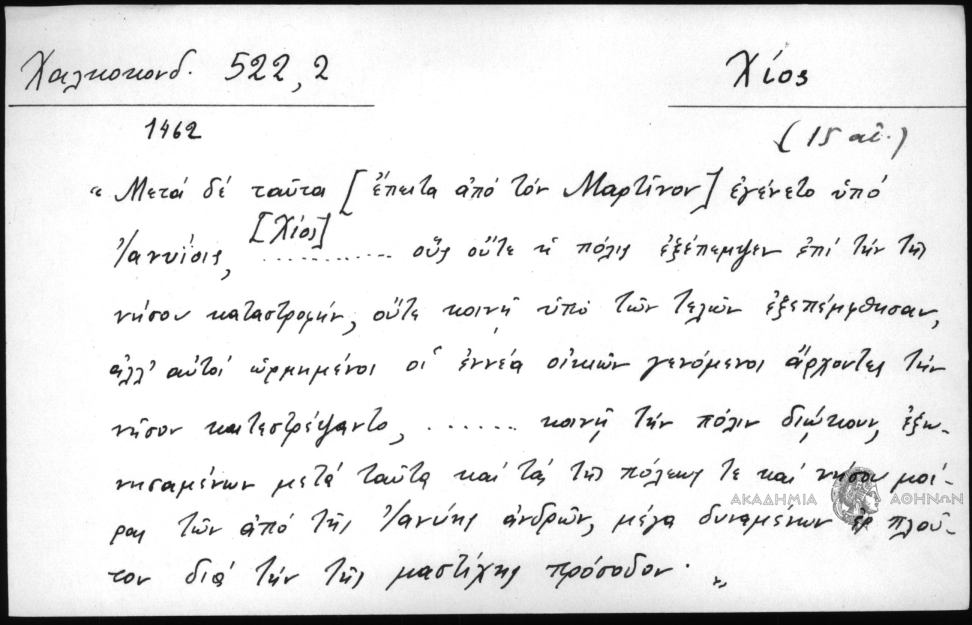 Χαλκοκονδ. 522,2
Χίος
1462
(15 αἰ.)
" Μετά δέ ταῦτα [ἔπειτα ἀπό τόν Μαρτῖνον] ἐγένετο ὑπό
[Χίος]
Ἰανυΐσις, .............. οὓς οὔτε ἡ πόλις ἐξέπεμψεν ἐπί τήν τῆς
νήσου καταστροφήν, οὔτε κοινῇ ὑπό τῶν τελῶν ἐξεπέμφθησαν,
ἀλλ' αὐτοί ὡρμημένοι οἱ ἐννέα οἰκιῶν γενόμενοι ἄρχοντες τήν
νῆσον κατεστρέψαντο, ....... κοινῇ τήν πόλιν διῴκουν, ἐξω-
νησαμένων μετά ταῦτα καί τάς τῆς πόλεως τε καί νήσου μοί-
ρας τῶν ἀπό τῆς Ἰανύης ἀνδρῶν, μέγα δυναμένων ἐς πλοῦ-
τον διά τήν τῆς μαστίχης πρόσοδον. "
ΑΚΑΔΗΜΙΑ ΑΘΗΝΩΝ